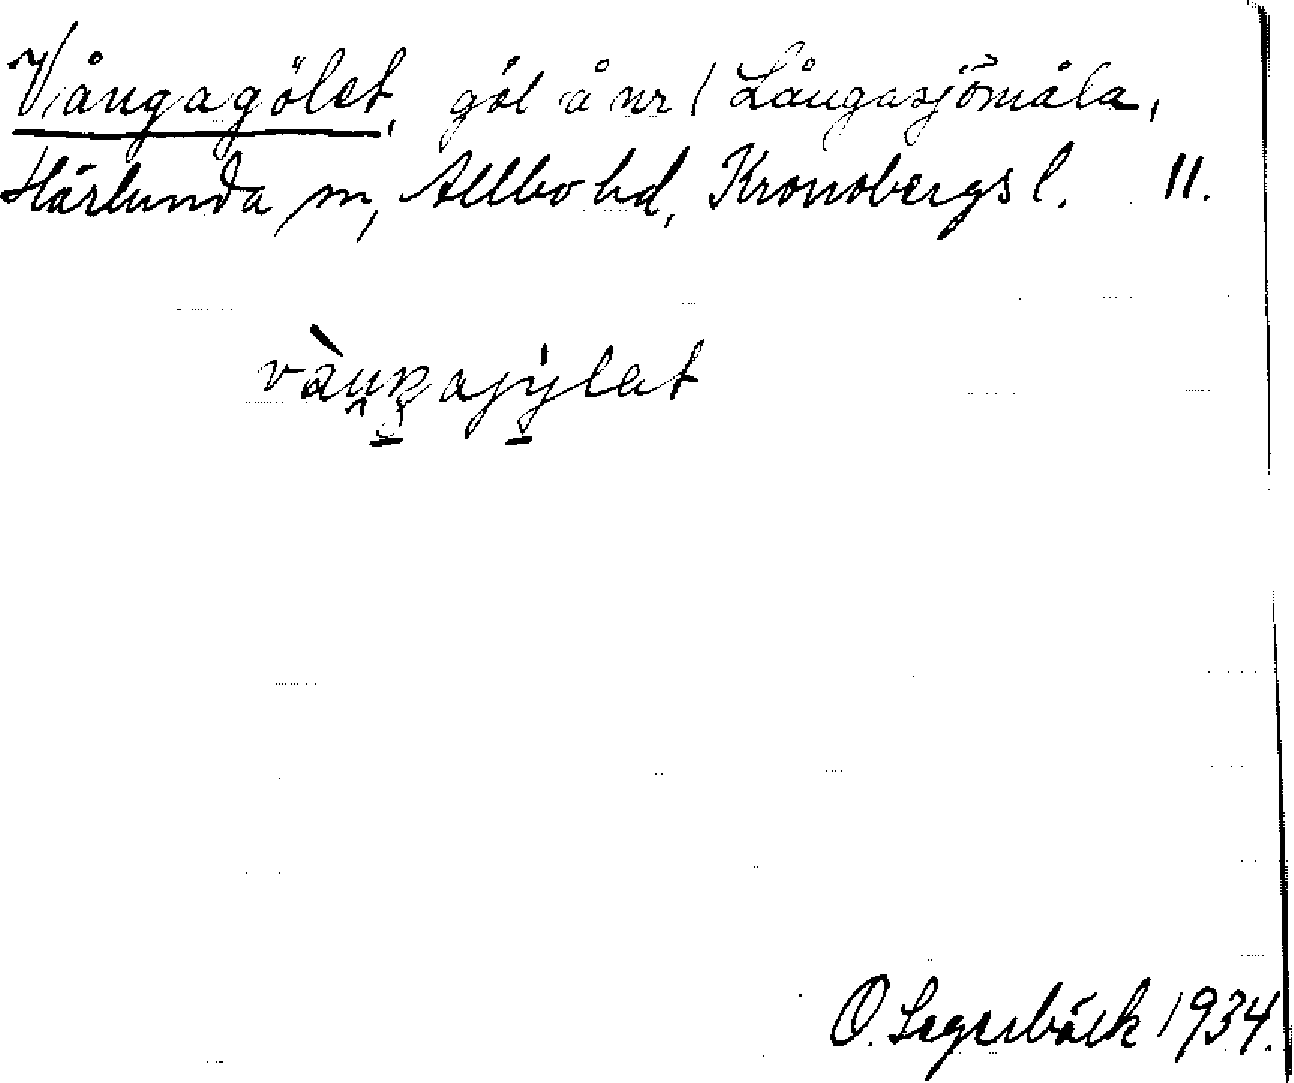 Vångagölet, göl å nr 1 Långasjömåla,
Härlunda sn, Allbo hd, Kronobergs l. 11.
O. Segerbäck 1934.